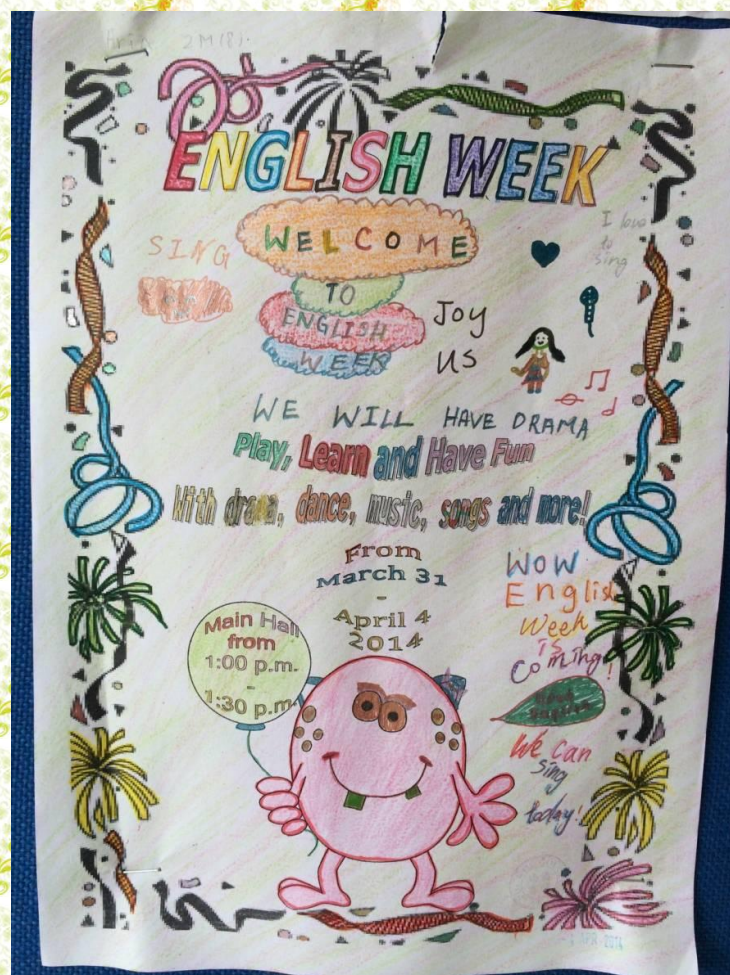 2M(8)
ENGLISH WEEK
WELCOME
TO
ENGLISH
WEEK
SING
I love
to
sing
Joy
us
WE WILL HAVE DRAMA
Play, Learn and Have Fun
With drama, dance, music, songs and more!
From
March 31
-
April 4
2014
Main Hall
from
1:00 p.m.
-
1:30 p.m.
WOW
English
Week
is
Coming!
We Can
sing
today!